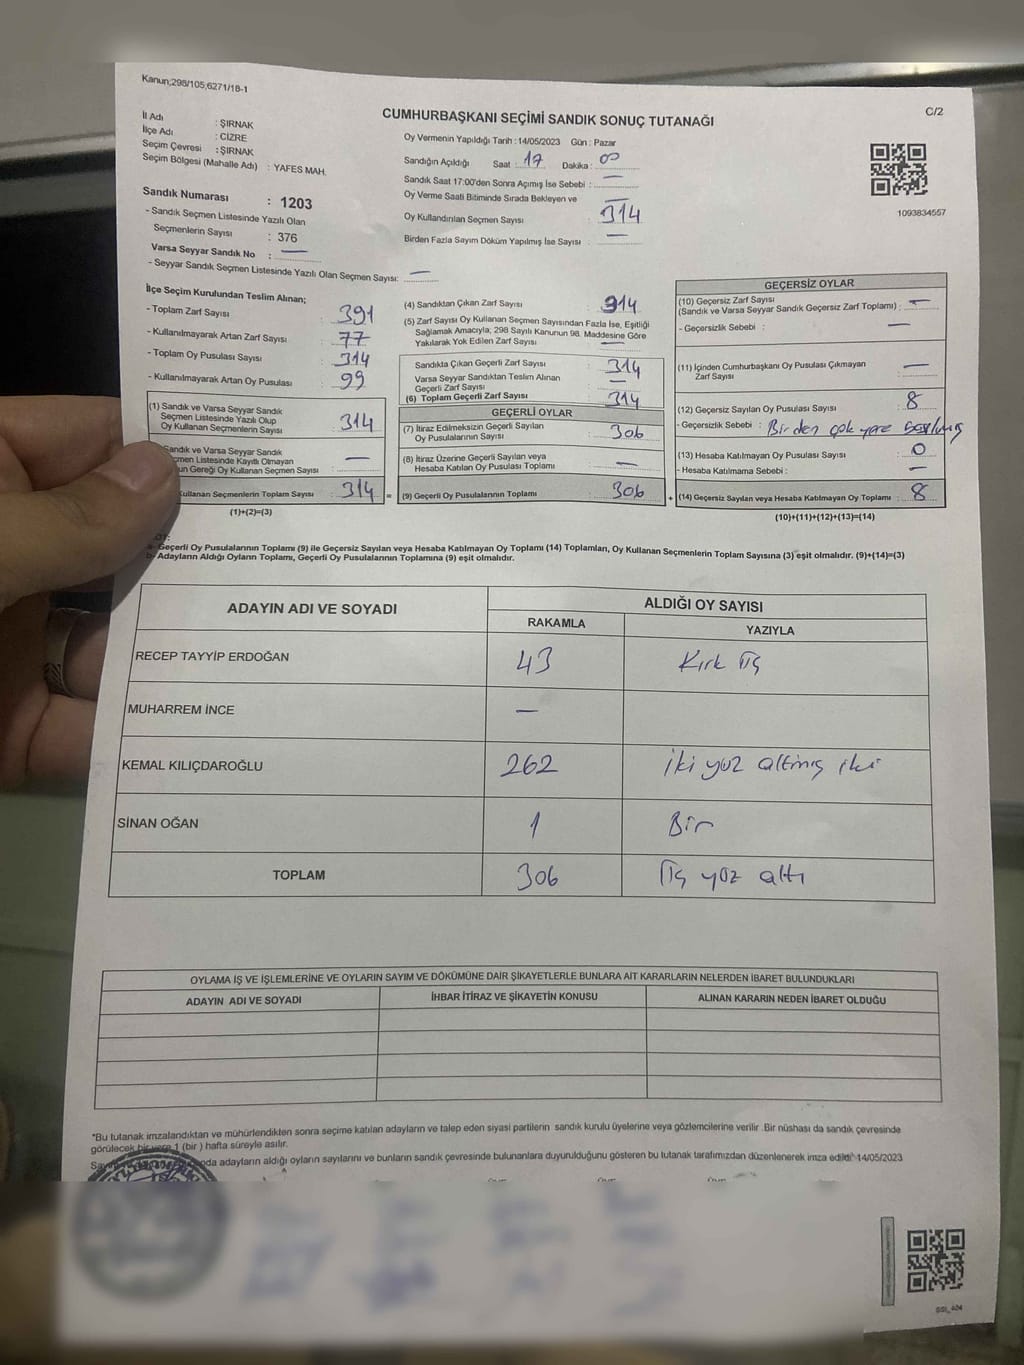 Kanun;298/105,6271/18-1
C/2
CUMHURBAŞKANI SEÇİMİ SANDIK SONUÇ TUTANAĞI
İl Adı : ŞIRNAK
İlçe Adı : CİZRE
Seçim Çevresi : ŞIRNAK
Seçim Bölgesi (Mahalle Adı) : YAFES MAH.
Sandık Numarası : 1203
- Sandık Seçmen Listesinde Yazılı Olan
Seçmenlerin Sayısı : 376
Varsa Seyyar Sandık No : —
- Seyyar Sandık Seçmen Listesinde Yazılı Olan Seçmen Sayısı: —
Oy Vermenin Yapıldığı Tarih : 14/05/2023 Gün : Pazar
Sandığın Açıldığı Saat : 17 Dakika : 00
Sandık Saat 17:00'den Sonra Açılmış İse Sebebi : —
Oy Verme Saati Bitiminde Sırada Bekleyen ve —
Oy Kullandırılan Seçmen Sayısı 314
Birden Fazla Sayım Döküm Yapılmış İse Sayısı : —
1093834557
İlçe Seçim Kurulundan Teslim Alınan;
- Toplam Zarf Sayısı : 391
- Kullanılmayarak Artan Zarf Sayısı : 77
- Toplam Oy Pusulası Sayısı : 314
- Kullanılmayarak Artan Oy Pusulası : 99
(1) Sandık ve Varsa Seyyar Sandık
Seçmen Listesinde Yazılı Olup
Oy Kullanan Seçmenlerin Sayısı : 314
Sandık ve Varsa Seyyar Sandık
Listesinde Kayıtlı Olmayan
Gereği Oy Kullanan Seçmen Sayısı : —
Kullanan Seçmenlerin Toplam Sayısı : 314 =
(1)+(2)=(3)
(4) Sandıktan Çıkan Zarf Sayısı : 314
(5) Zarf Sayısı Oy Kullanan Seçmen Sayısından Fazla İse, Eşitliği
Sağlamak Amacıyla; 298 Sayılı Kanunun 98. Maddesine Göre
Yakılarak Yok Edilen Zarf Sayısı : —
Sandıkta Çıkan Geçerli Zarf Sayısı : 314
Varsa Seyyar Sandıktan Teslim Alınan
Geçerli Zarf Sayısı : —
(6) Toplam Geçerli Zarf Sayısı : 314
GEÇERLİ OYLAR
(7) İtiraz Edilmeksizin Geçerli Sayılan
Oy Pusulalarının Sayısı : 306
(8) İtiraz Üzerine Geçerli Sayılan veya
Hesaba Katılan Oy Pusulası Toplamı : —
(9) Geçerli Oy Pusulalarının Toplamı : 306 +
GEÇERSİZ OYLAR
(10) Geçersiz Zarf Sayısı
(Sandık ve Varsa Seyyar Sandık Geçersiz Zarf Toplamı) : —
- Geçersizlik Sebebi : —
(11) İçinden Cumhurbaşkanı Oy Pusulası Çıkmayan
Zarf Sayısı : —
(12) Geçersiz Sayılan Oy Pusulası Sayısı : 8
- Geçersizlik Sebebi : Birden çok yere
(13) Hesaba Katılmayan Oy Pusulası Sayısı : 0
- Hesaba Katılmama Sebebi : —
(14) Geçersiz Sayılan veya Hesaba Katılmayan Oy Toplamı : 8
(10)+(11)+(12)+(13)=(14)
Geçerli Oy Pusulalarının Toplamı (9) ile Geçersiz Sayılan veya Hesaba Katılmayan Oy Toplamı (14) Toplamları, Oy Kullanan Seçmenlerin Toplam Sayısına (3) eşit olmalıdır. (9)+(14)=(3)
b- Adayların Aldığı Oyların Toplamı, Geçerli Oy Pusulalarının Toplamına (9) eşit olmalıdır.
ADAYIN ADI VE SOYADI ALDIĞI OY SAYISI
RAKAMLA YAZIYLA
RECEP TAYYİP ERDOĞAN 43 Kırk üç
MUHARREM İNCE —
KEMAL KILIÇDAROĞLU 262 iki yüz altmış iki
SİNAN OĞAN 1 Bir
TOPLAM 306 Üç yüz altı
OYLAMA İŞ VE İŞLEMLERİNE VE OYLARIN SAYIM VE DÖKÜMÜNE DAİR ŞİKAYETLERLE BUNLARA AİT KARARLARIN NELERDEN İBARET BULUNDUKLARI
ADAYIN ADI VE SOYADI İHBAR İTİRAZ VE ŞİKAYETİN KONUSU ALINAN KARARIN NEDEN İBARET OLDUĞU
*Bu tutanak imzalandıktan ve mühürlendikten sonra seçime katılan adayların ve talep eden siyasi partilerin sandık kurulu üyelerine veya gözlemcilerine verilir .Bir nüshası da sandık çevresinde
görülecek bir yere 1 (bir ) hafta süreyle asılır.
adayların aldığı oyların sayılarını ve bunların sandık çevresinde bulunanlara duyurulduğunu gösteren bu tutanak tarafımızdan düzenlenerek imza edildi. 14/05/2023